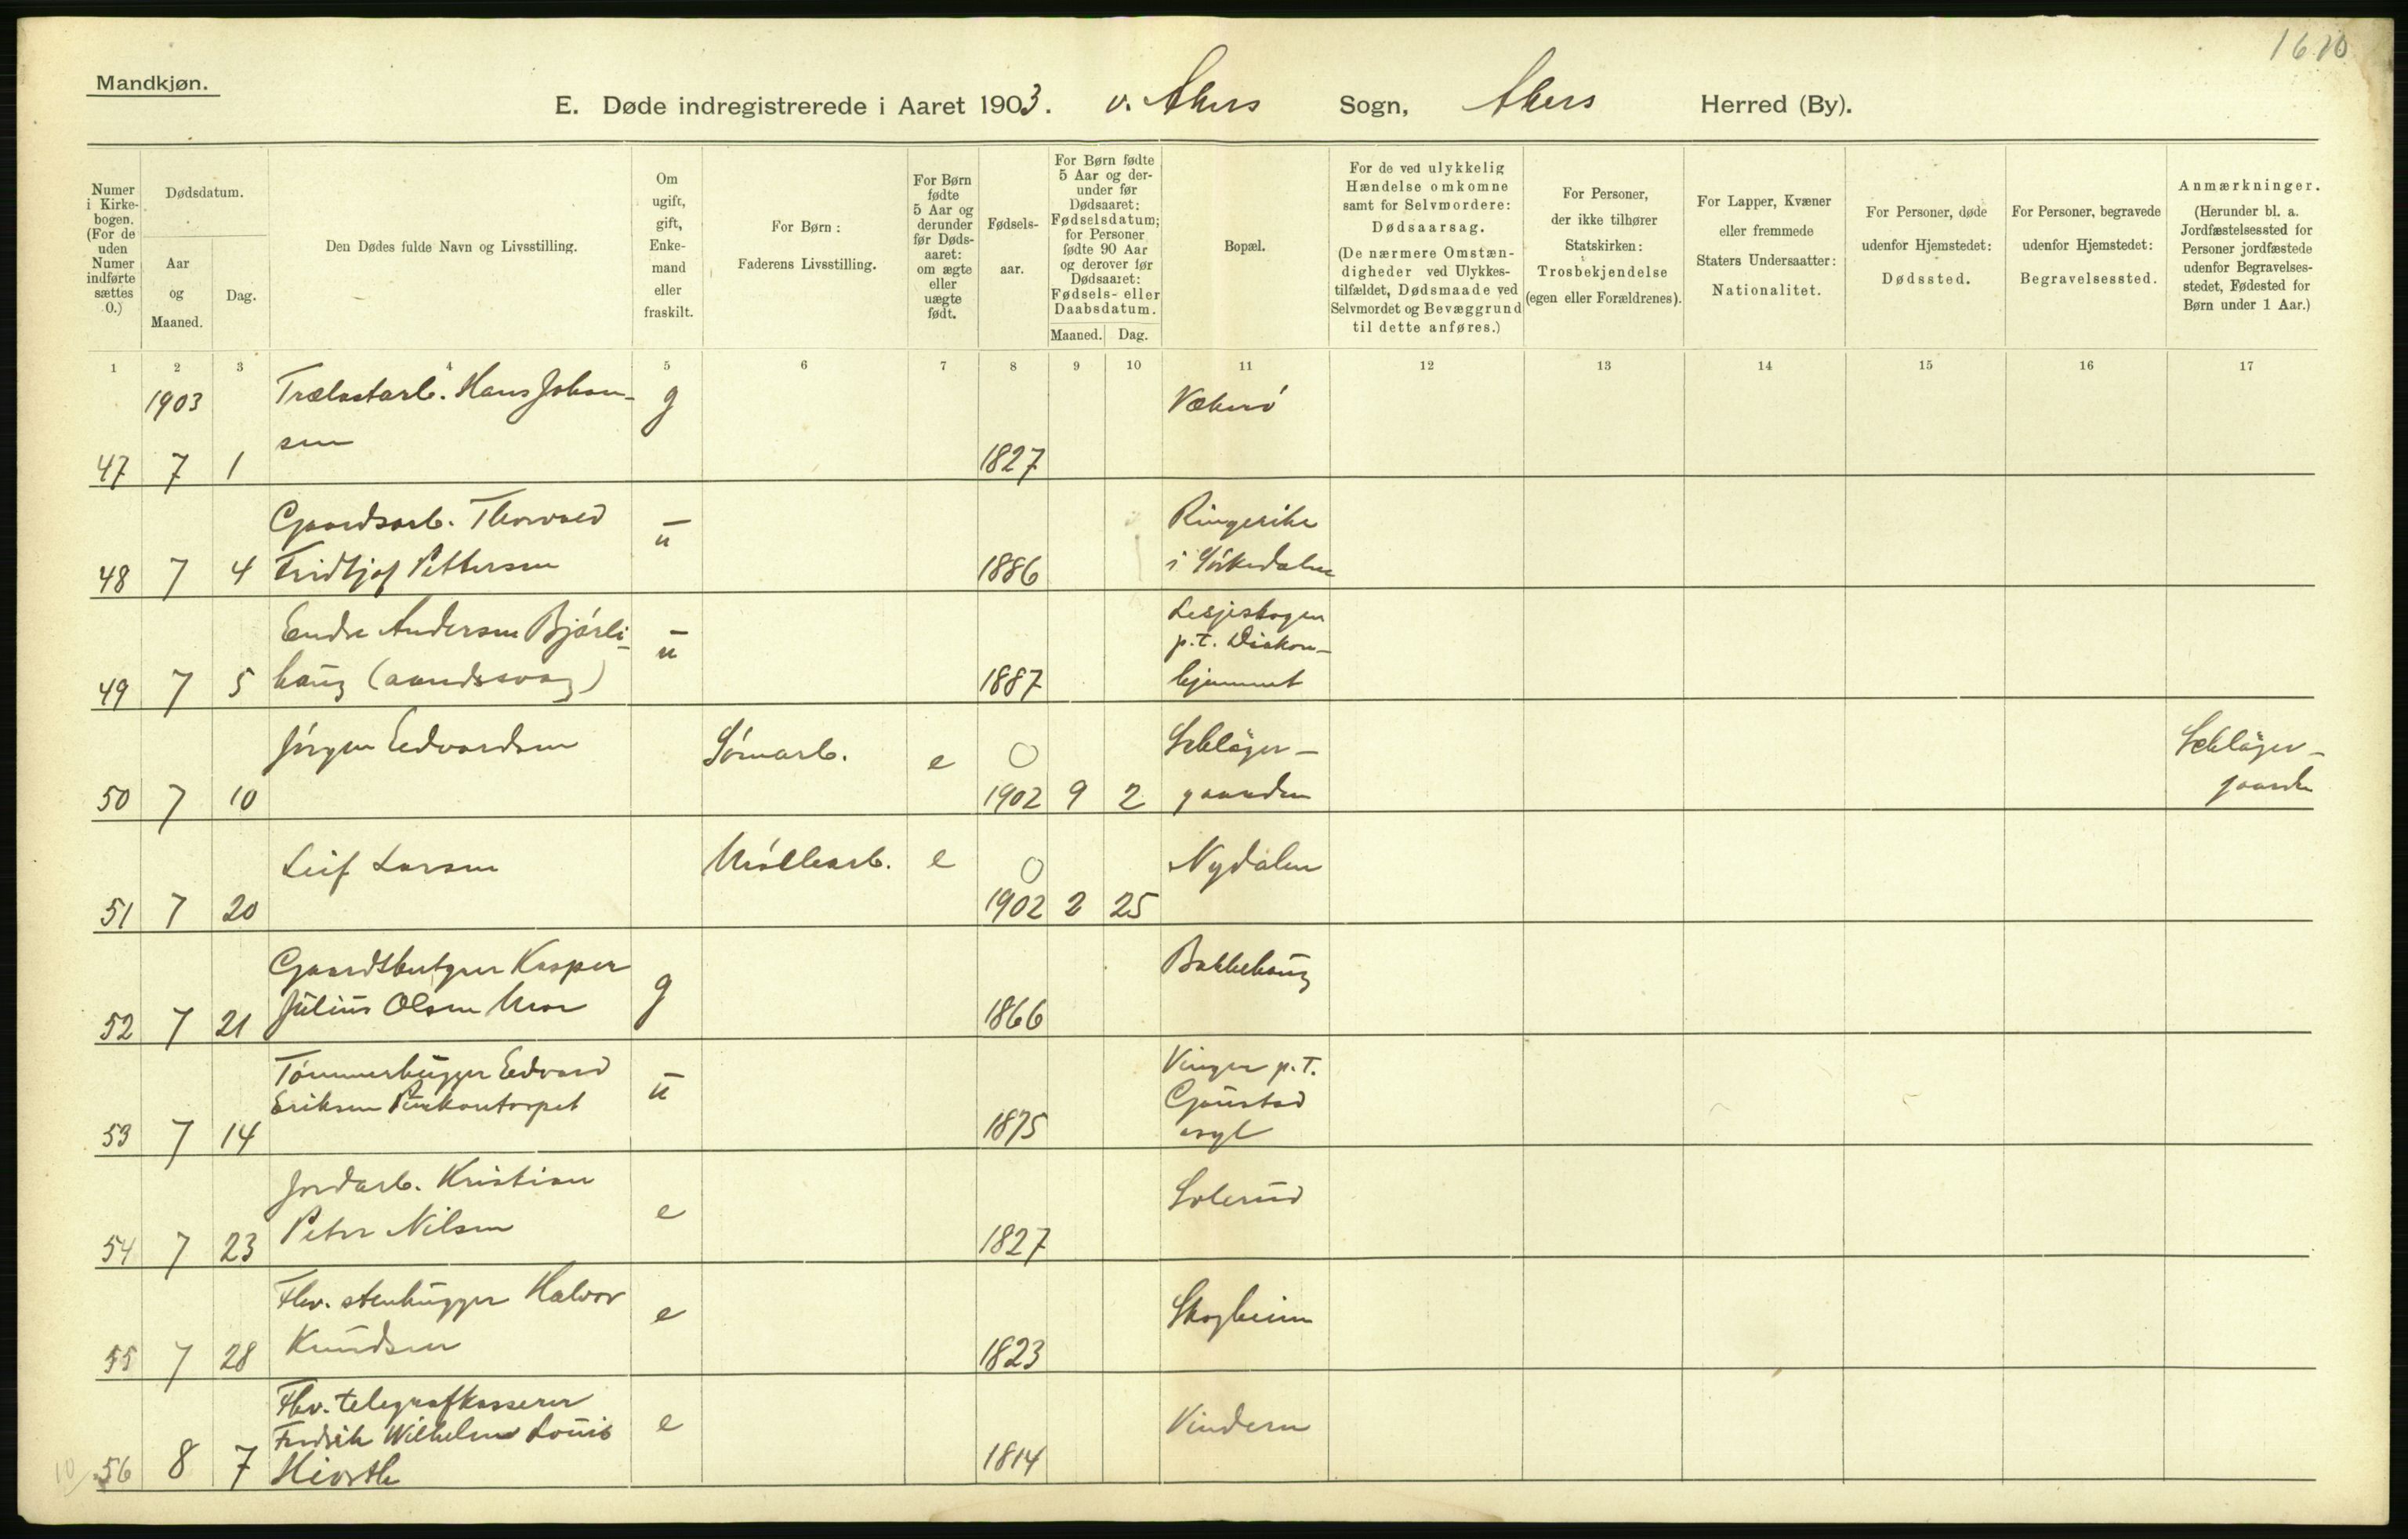 1610
Mandkjøn.
E. Døde indregistrerede i Aaret 1903. v. Akers Sogn, Akers Herred (By).
Numer i Kirke-bogen. (For de uden Numer indførte sættes 0.)
Dødsdatum.
Aar og Maaned.
Dag.
Den Dødes fulde Navn og Livsstilling.
Om ugift, gift, Enke-mand eller fraskilt.
For Børn: Faderens Livsstilling.
For Børn fødte 5 Aar og derunder før Døds-aaret: om ægte eller uægte født.
Fødsels-aar.
For Børn fødte 5 Aar og der-under før Dødsaaret: Fødselsdatum; for Personer fødte 90 Aar og derover før Dødsaaret: Fødsels- eller Daabsdatum.
Maaned. Dag.
Bopæl.
For de ved ulykkelig Hændelse omkomne samt for Selvmordere: Dødsaarsag. (De nærmere Omstæn-digheder ved Ulykkes-tilfældet, Dødsmaade ved Selvmordet og Bevæggrund til dette anføres.)
For Personer, der ikke tilhører Statskirken: Trosbekjendelse (egen eller Forældrenes).
For Lapper, Kvæner eller fremmede Staters Undersaatter: Nationalitet.
For Personer, døde udenfor Hjemstedet: Dødssted.
For Personer, begravede udenfor Hjemstedet: Begravelsessted.
Anmærkninger. (Herunder bl. a. Jordfæstelsessted for Personer jordfæstede udenfor Begravelses-stedet, Fødested for Børn under 1 Aar.)
1 2 3 4 5 6 7 8 9 10 11 12 13 14 15 16 17
1903 Trælastarb. Hans Johan- g Vækerö
sen
47 7 1 1827
Gaardsarb. Thorvald u Ringerike
48 7 4 Fridtjof Pettersen 1886 i Sörkedalen
Endre Andersen Bjørli- u Lesjeskogen
p.t. Diakon-
49 7 5 haug (aandssvag) 1887 hjemmet
Jörgen Edvardsen Sömarb. e 0 Schläger-
50 7 10 1902 9 2 gaarden
Schläger-
gaarden
Leif Larsen Möllearb. e 0 Nydalen
51 7 20 1902 2 25
Gaardbruger Kasper g Bakkehaug
52 7 21 Julius Olsen Moe 1866
Tömmerhugger Edvard u Vinger p.t.
Eriksen Purkontorpet Gaustad
53 7 14 1875 asyl
Jordarb. Kristian e Solerud
54 7 23 Peter Nilsen 1827
Fhv. stenhugger Halvor e Skogheim
55 7 28 Knudsen 1823
Fhv. telegrafkasserer e Vindern
Fredrik Wilhelm Louis
10/ 56 8 7 Hiorth 1814